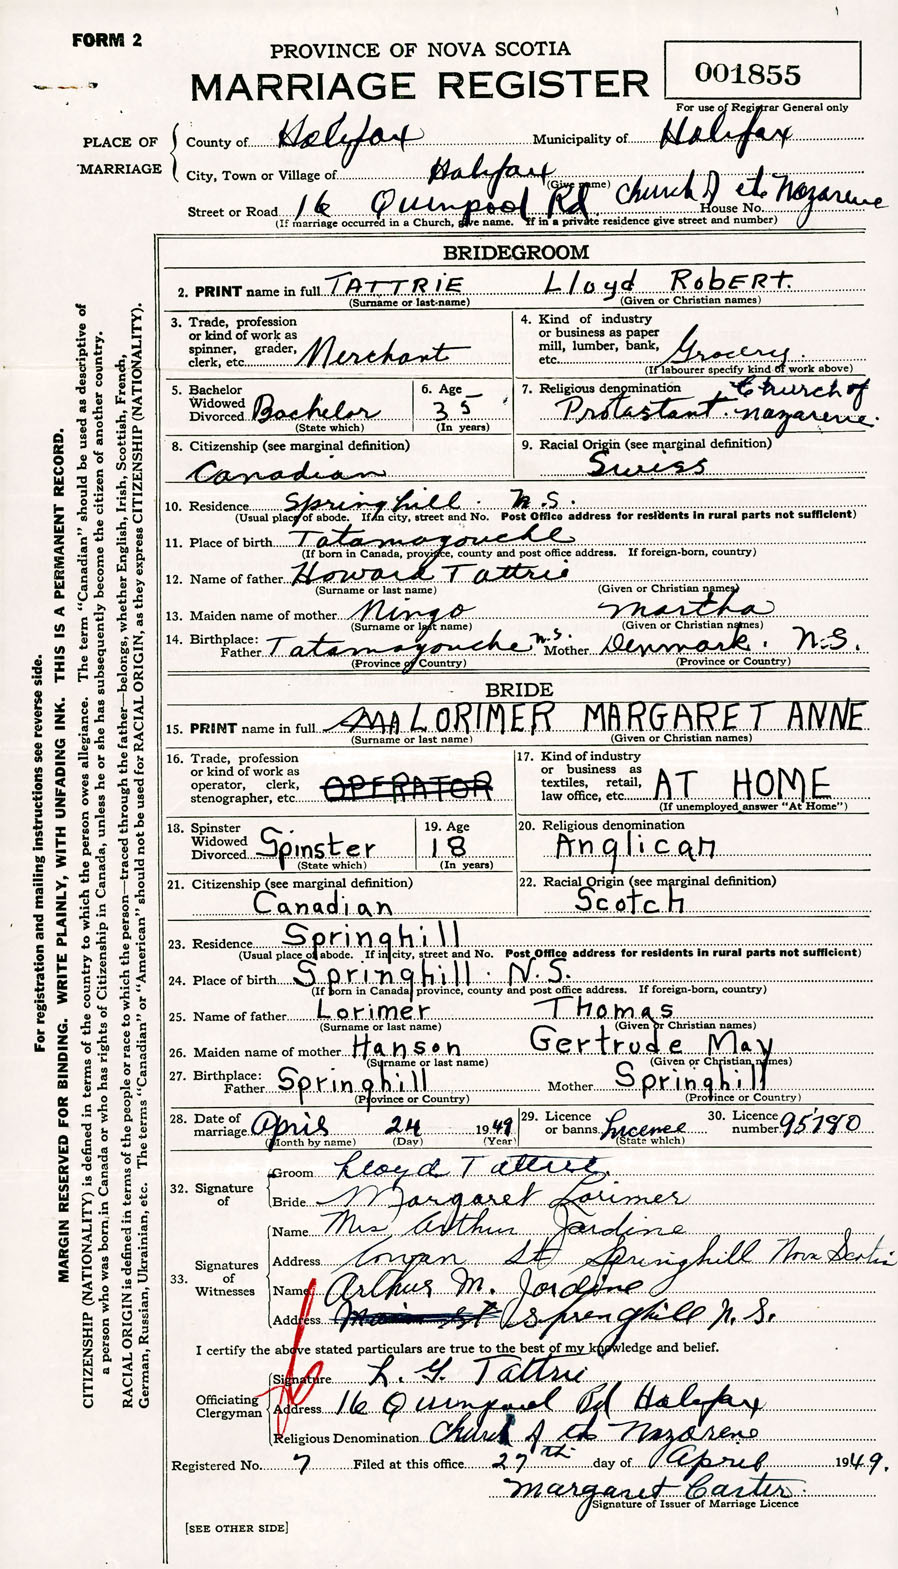 FORM 2
PROVINCE OF NOVA SCOTIA
MARRIAGE REGISTER
001855
For use of Registrar General only
PLACE OF MARRIAGE
County of Halifax Municipality of Halifax
City, Town or Village of Halifax
(Give name)
Street or Road 16 Quinpool Rd Church of the Nazarene House No.
(If marriage occurred in a Church, give name. If in a private residence give street and number)
BRIDEGROOM
2. PRINT name in full TATTRIE Lloyd RobERT.
(Surname or last-name) (Given or Christian names)
3. Trade, profession or kind of work as spinner, grader, clerk, etc. Merchant
4. Kind of industry or business as paper mill, lumber, bank, etc. Grocery.
(If labourer specify kind of work above)
5. Bachelor Widowed Divorced Bachelor
(State which)
6. Age 35
(In years)
7. Religious denomination Protastant. Church of Nazarene.
8. Citizenship (see marginal definition)
Canadian
9. Racial Origin (see marginal definition)
Swiss
10. Residence Springhill. N.S.
(Usual place of abode. If in city, street and No. Post Office address for residents in rural parts not sufficient)
11. Place of birth Tatamagouche
(If born in Canada, province, county and post office address. If foreign-born, country)
12. Name of father Howard Tattrie
(Surname or last name) (Given or Christian names)
13. Maiden name of mother Mingo Martha
(Surname or last name) (Given or Christian names)
14. Birthplace: Father Tatamagouche N.S. Mother Denmark. N.S.
(Province or Country) (Province or Country)
BRIDE
15. PRINT name in full LORIMER MARGARET ANNE
(Surname or last name) (Given or Christian names)
16. Trade, profession or kind of work as operator, clerk, stenographer, etc. OPERATOR
17. Kind of industry or business as textiles, retail, law office, etc. AT HOME
(If unemployed answer "At Home")
18. Spinster Widowed Divorced Spinster
(State which)
19. Age 18
(In years)
20. Religious denomination
Anglican
21. Citizenship (see marginal definition)
Canadian
22. Racial Origin (see marginal definition)
Scotch
23. Residence Springhill
(Usual place of abode. If in city, street and No. Post Office address for residents in rural parts not sufficient)
24. Place of birth Springhill. N.S.
(If born in Canada, province, county and post office address. If foreign-born, country)
25. Name of father Lorimer Thomas
(Surname or last name) (Given or Christian names)
26. Maiden name of mother Hanson Gertrude May
(Surname or last name) (Given or Christian names)
27. Birthplace: Father Springhill Mother Springhill
(Province or Country) (Province or Country)
28. Date of marriage April 24 1949
(Month by name) (Day) (Year)
29. Licence or banns. Licence
(State which)
30. Licence number 95780
32. Signature of
Groom Lloyd Tattrie.
Bride Margaret Lorimer
33. Signatures of Witnesses
Name Mrs Arthur Jardine
Address St Springhill Nova Scotia
Name Arthur M. Jardine
Address Main St Springhill N.S.
I certify the above stated particulars are true to the best of my knowledge and belief.
Officiating Clergyman
Signature L. G. Tattrie
Address 16 Quinpool Rd Halifax
Religious Denomination Church of the Nazarene
Registered No. 7 Filed at this office 27th day of April 1949.
Margaret Carter.
Signature of Issuer of Marriage Licence
[SEE OTHER SIDE]
For registration and mailing instructions see reverse side.
MARGIN RESERVED FOR BINDING. WRITE PLAINLY, WITH UNFADING INK. THIS IS A PERMANENT RECORD.
CITIZENSHIP (NATIONALITY) is defined in terms of the country to which the person owes allegiance. The term "Canadian" should be used as descriptive of
a person who was born in Canada or who has rights of Citizenship in Canada, unless he or she has subsequently become the citizen of another country.
RACIAL ORIGIN is defined in terms of the people or race to which the person—traced through the father—belongs, whether English, Irish, Scottish, French,
German, Russian, Ukrainian, etc. The terms "Canadian" or "American" should not be used for RACIAL ORIGIN, as they express CITIZENSHIP (NATIONALITY).